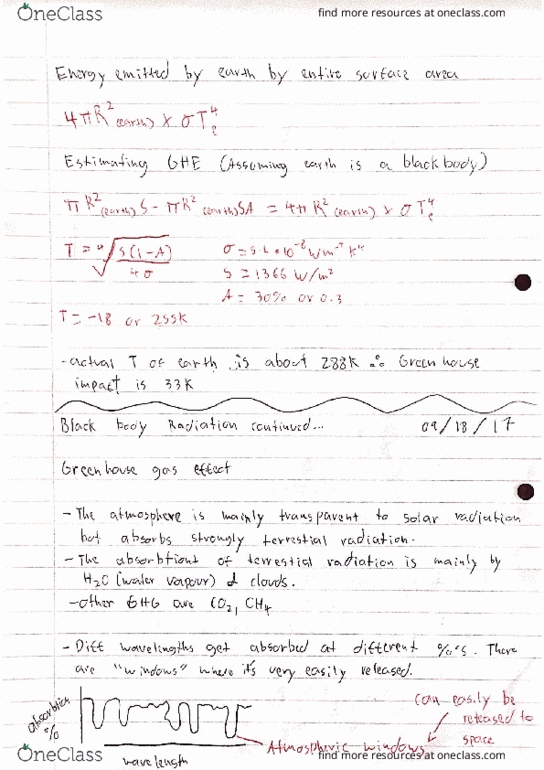 OneClass
find more resources at oneclass.com
Energy emitted by earth by entire surface area
4πR²(earth) × σTe⁴
Estimating GHE (Assuming earth is a blackbody)
πR²(earth)S - πR²(earth)SA = 4πR²(earth) × σTe⁴
T = ⁴√S(1-A)/4σ
σ = 5.6 × 10⁻⁸ Wm⁻² K⁻⁴
S = 1366 W/m²
A = 30% or 0.3
T = -18 or 255K
- actual T of earth is about 288K ∴ Greenhouse
impact is 33K
Black body Radiation continued... 09/18/17
Greenhouse gas effect
- The atmosphere is mainly transparent to solar radiation
but absorbs strongly terrestrial radiation.
- The absorbtiont of terrestial radiation is mainly by
H₂O (water vapour) & clouds.
- other GHG are CO₂, CH₄
- Diff wavelengths get absorbed at different %'s. There
are "windows" where it's very easily released.
absorbtion
%
wavelength
Atmospheric windows
can easily be
released to
space
OneClass
find more resources at oneclass.com